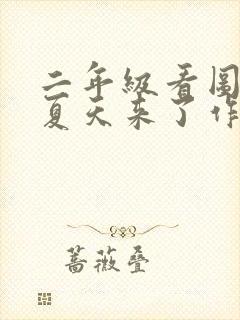 二年级看图
夏天来了作
蔷薇叠